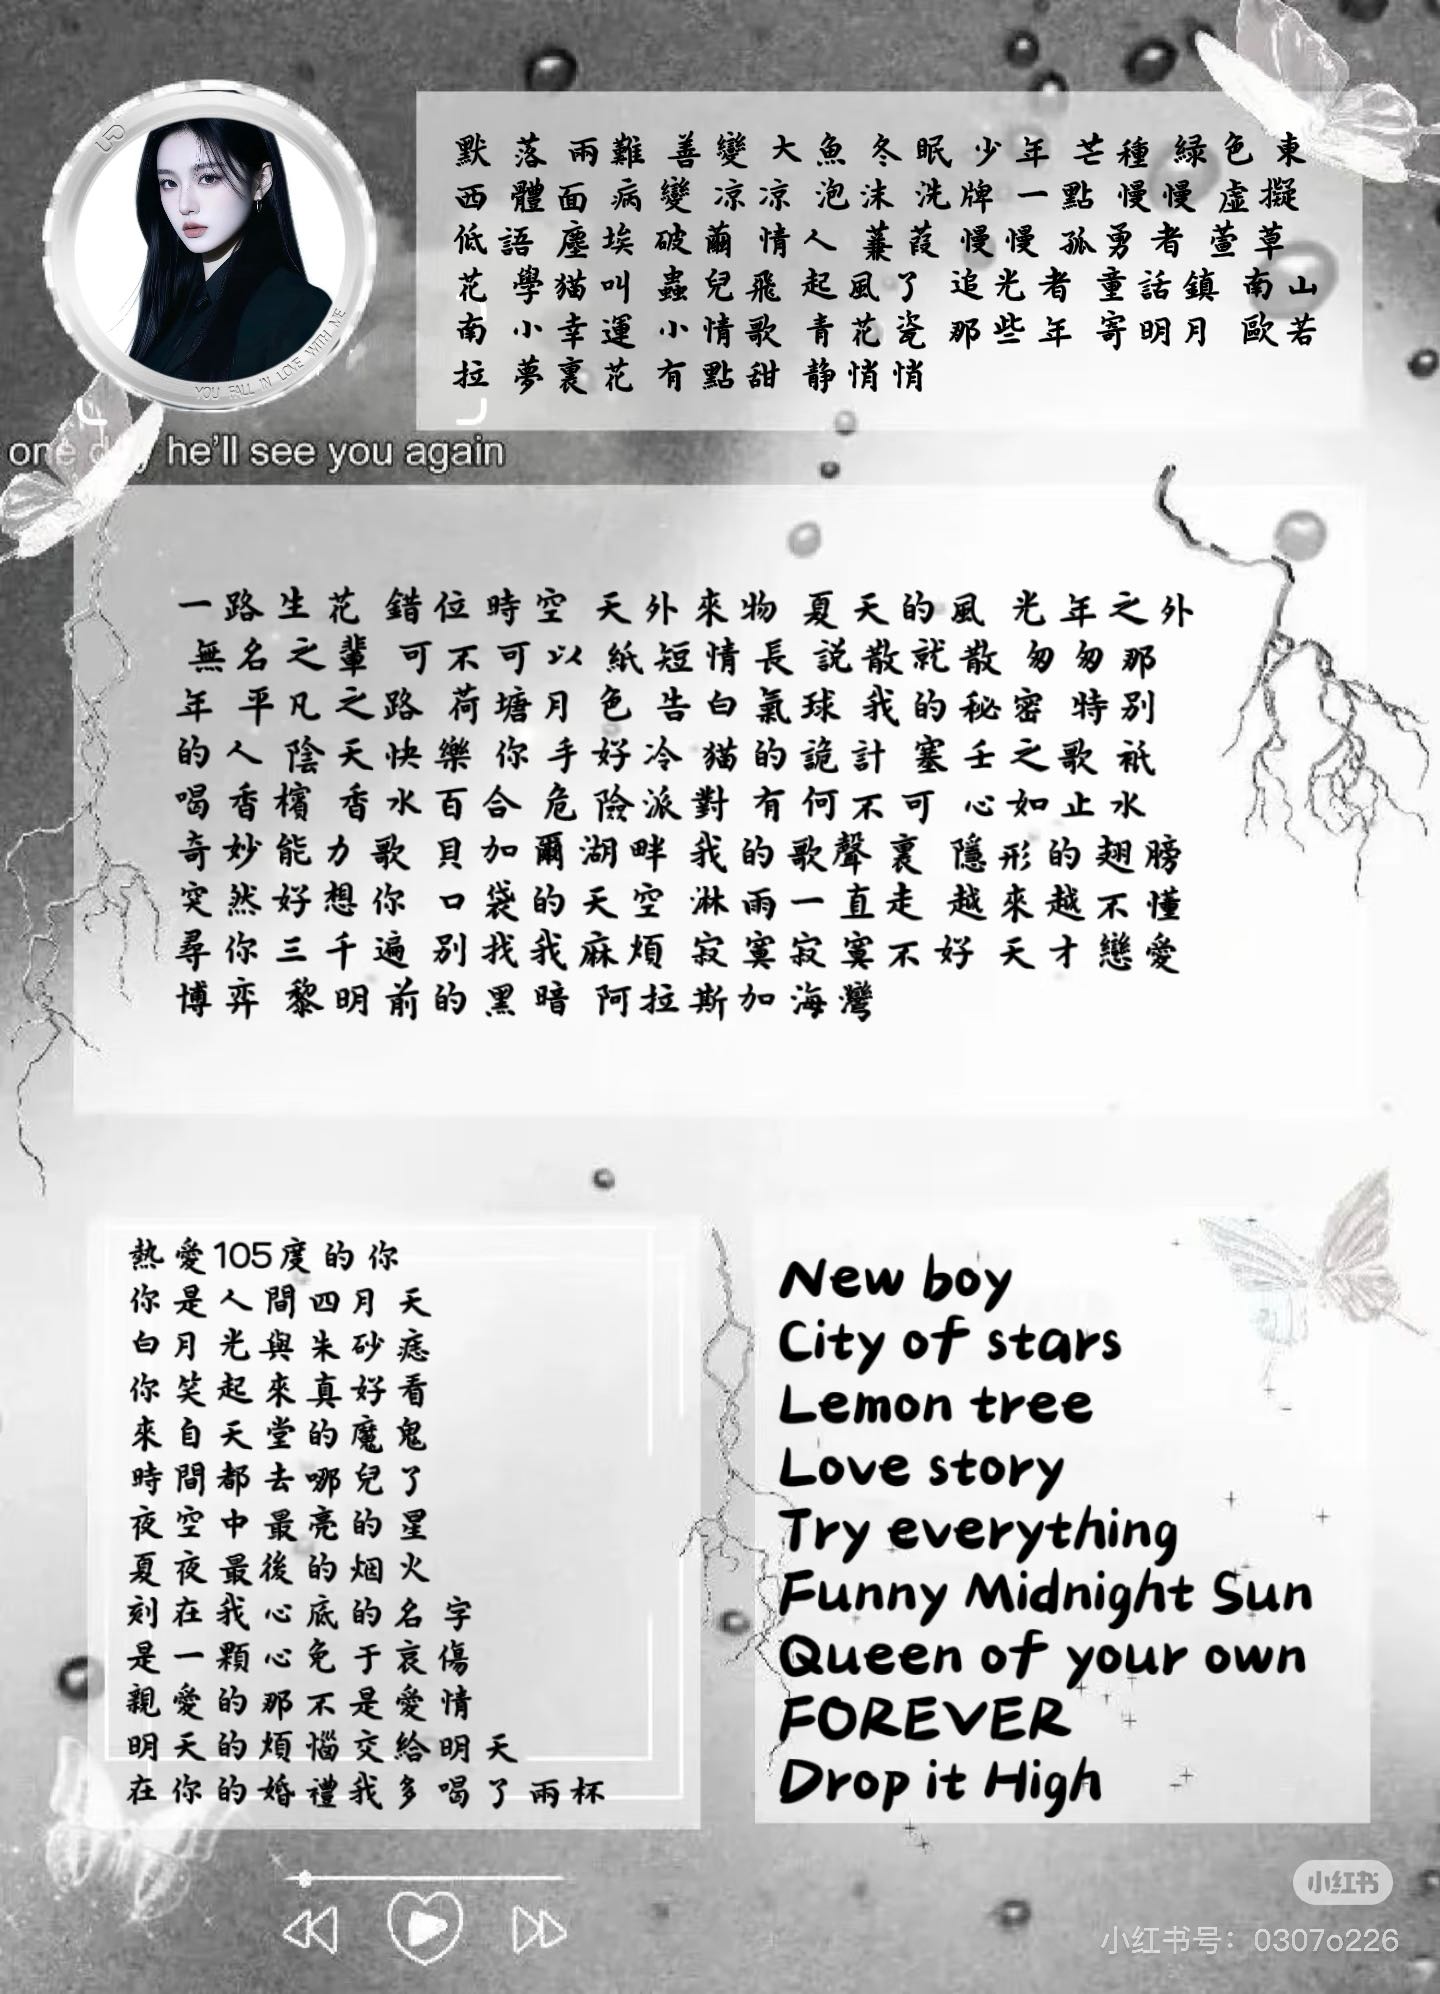 默 落 兩難 善變 大魚 冬眠 少年 芒種 綠色 東
西 體面 病變 涼涼 泡沫 洗牌 一點 慢慢 虛擬
低語 塵埃 破繭 情人 蒹葭 慢慢 孤勇者 萱草
花 學猫叫 蟲兒飛 起風了 追光者 童話鎮 南山
南 小幸運 小情歌 青花瓷 那些年 寄明月 歐若
拉 夢裏花 有點甜 静悄悄
YOU FALL IN LOVE WITH ME
one day he'll see you again
一路生花 錯位時空 天外來物 夏天的風 光年之外
無名之輩 可不可以 紙短情長 説散就散 匆匆那
年 平凡之路 荷塘月色 告白氣球 我的秘密 特别
的人 陰天快樂 你手好冷 猫的詭計 塞壬之歌 衹
喝香檳 香水百合 危險派對 有何不可 心如止水
奇妙能力歌 貝加爾湖畔 我的歌聲裏 隱形的翅膀
突然好想你 口袋的天空 淋雨一直走 越來越不懂
尋你三千遍 别找我麻煩 寂寞寂寞不好 天才戀愛
博弈 黎明前的黑暗 阿拉斯加海灣
熱愛105度的你
你是人間四月天
白月光與朱砂痣
你笑起來真好看
來自天堂的魔鬼
時間都去哪兒了
夜空中最亮的星
夏夜最後的烟火
刻在我心底的名字
是一顆心免于哀傷
親愛的那不是愛情
明天的煩惱交給明天
在你的婚禮我多喝了兩杯
New boy
City of stars
Lemon tree
Love story
Try everything
Funny Midnight Sun
Queen of your own
FOREVER
Drop it High
小红书
小红书号：0307o226